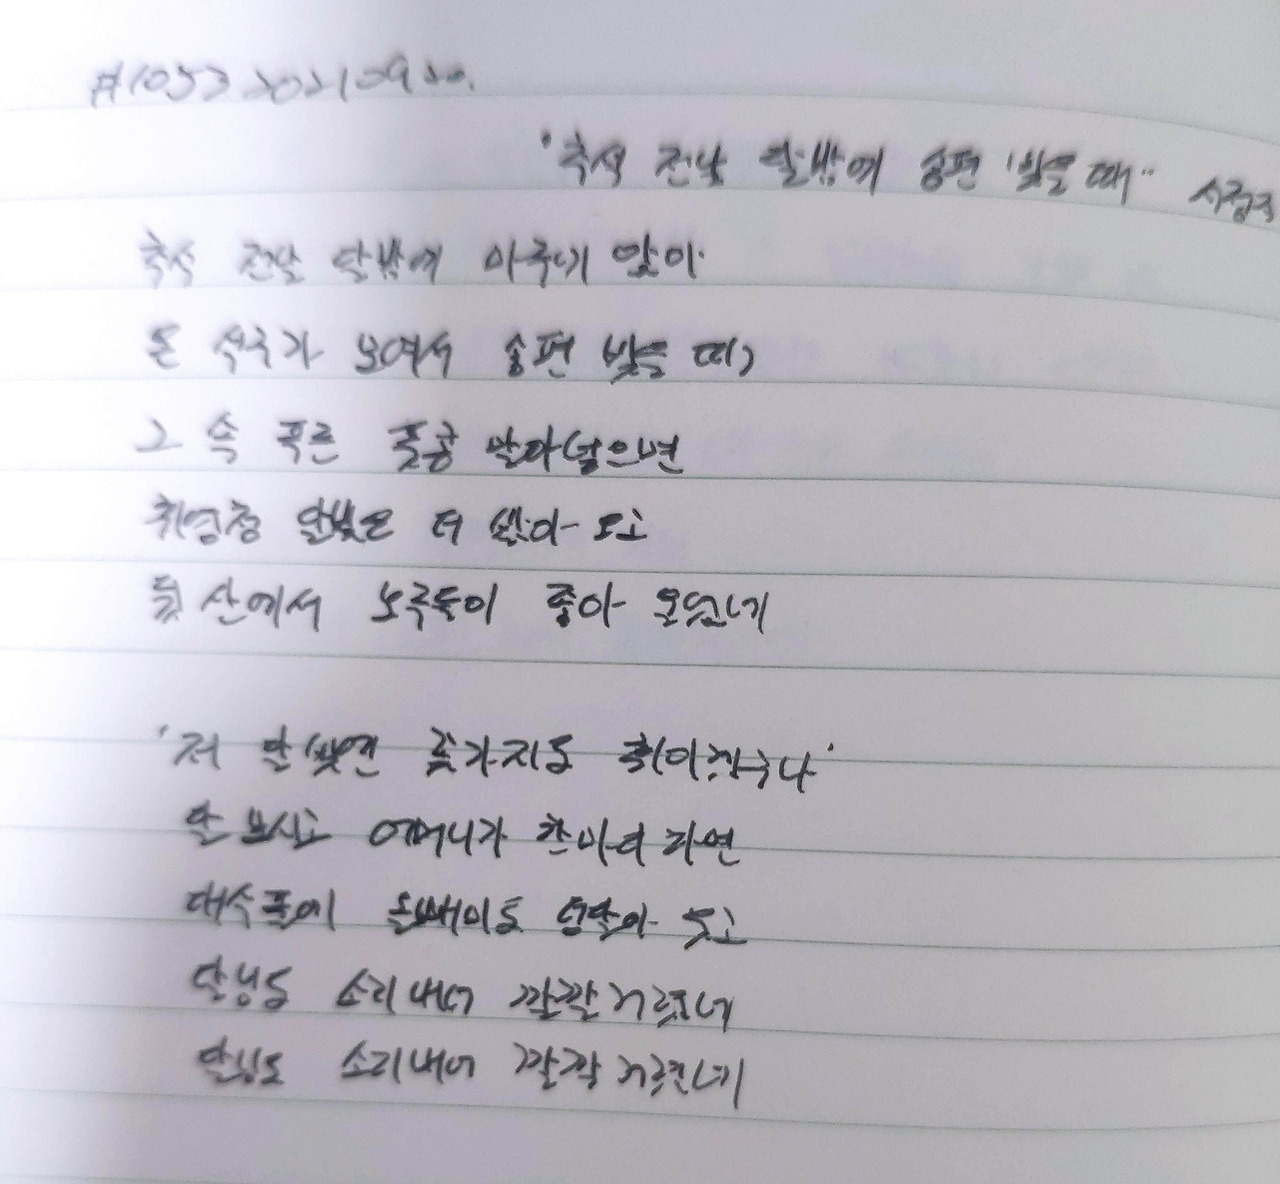 #1053 20210920.
'추석 전날 달밤에 송편 빚을 때" 서정주
추석 전날 달밤에 마루에 앉아
온 식구가 모여서 송편 빚을 때
그 속 푸른 풋콩 말아넣으면
휘영청 달빛은 더 밝아 오고
뒷산에서 노루들이 좋아 울었네
'저 달빛엔 꽃가지도 휘이겠구나'
달 보시고 어머니가 한마디 하면
대수풀에 올빼미도 덩달아 웃고
달님도 소리내어 깔깔거렸네
달님도 소리내어 깔깔거렸네